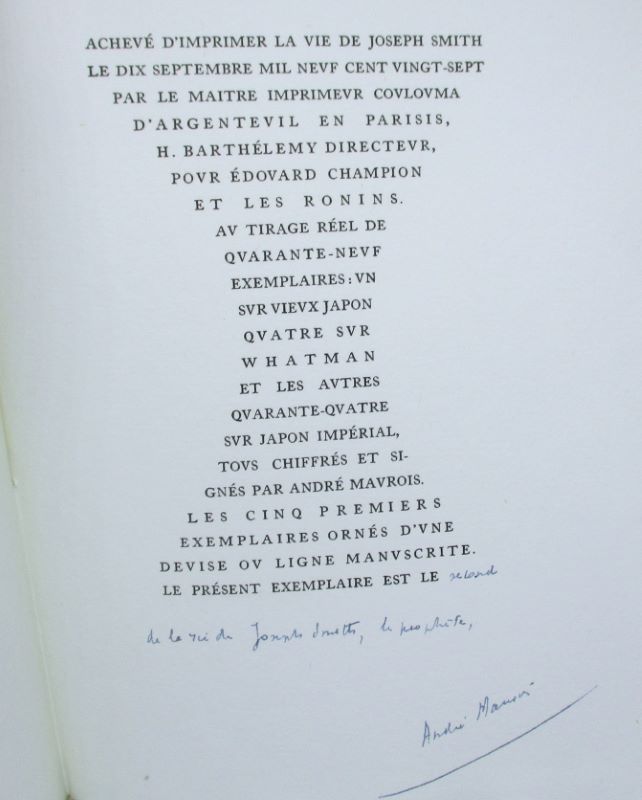 ACHEVÉ D'IMPRIMER LA VIE DE JOSEPH SMITH
LE DIX SEPTEMBRE MIL NEVF CENT VINGT-SEPT
PAR LE MAITRE IMPRIMEVR COVLOVMA
D'ARGENTEVIL EN PARISIS,
H. BARTHÉLEMY DIRECTEVR,
POVR ÉDOVARD CHAMPION
ET LES RONINS.
AV TIRAGE RÉEL DE
QVARANTE-NEVF
EXEMPLAIRES : VN
SVR VIEVX JAPON
QVATRE SVR
WHATMAN
ET LES AVTRES
QVARANTE-QVATRE
SVR JAPON IMPÉRIAL,
TOVS CHIFFRÉS ET SI-
GNÉS PAR ANDRÉ MAVROIS.
LES CINQ PREMIERS
EXEMPLAIRES ORNÉS D'VNE
DEVISE OV LIGNE MANVSCRITE.
LE PRÉSENT EXEMPLAIRE EST LE second
de la vie de Joseph Smith, le prophète,
André Maurois